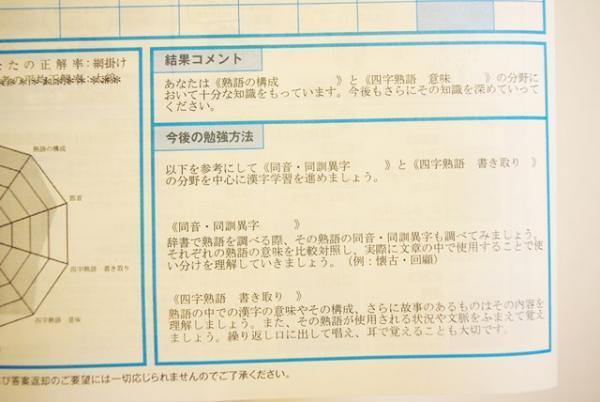 たの正解率:網掛け
者の平均正解率:太線
熟語の構成
部首
四字熟語 書き取り
四字熟語 意味
結果コメント
あなたは《熟語の構成 》と《四字熟語 意味 》の分野に
おいて十分な知識をもっています。今後もさらにその知識を深めていって
ください。
今後の勉強方法
以下を参考にして《同音・同訓異字 》と《四字熟語 書き取り 》
の分野を中心に漢字学習を進めましょう。
《同音・同訓異字 》
辞書で熟語を調べる際、その熟語の同音・同訓異字も調べてみましょう。
それぞれの熟語の意味を比較対照し、実際に文章の中で使用することで使
い分けを理解していきましょう。(例:懐古・回顧)
《四字熟語 書き取り 》
熟語の中での漢字の意味やその構成、さらに故事のあるものはその内容を
理解しましょう。また、その熟語が使用される状況や文脈をふまえて覚え
ましょう。繰り返し口に出して唱え、耳で覚えることも大切です。
び答案返却のご要望には一切応じられませんのでご了承ください。